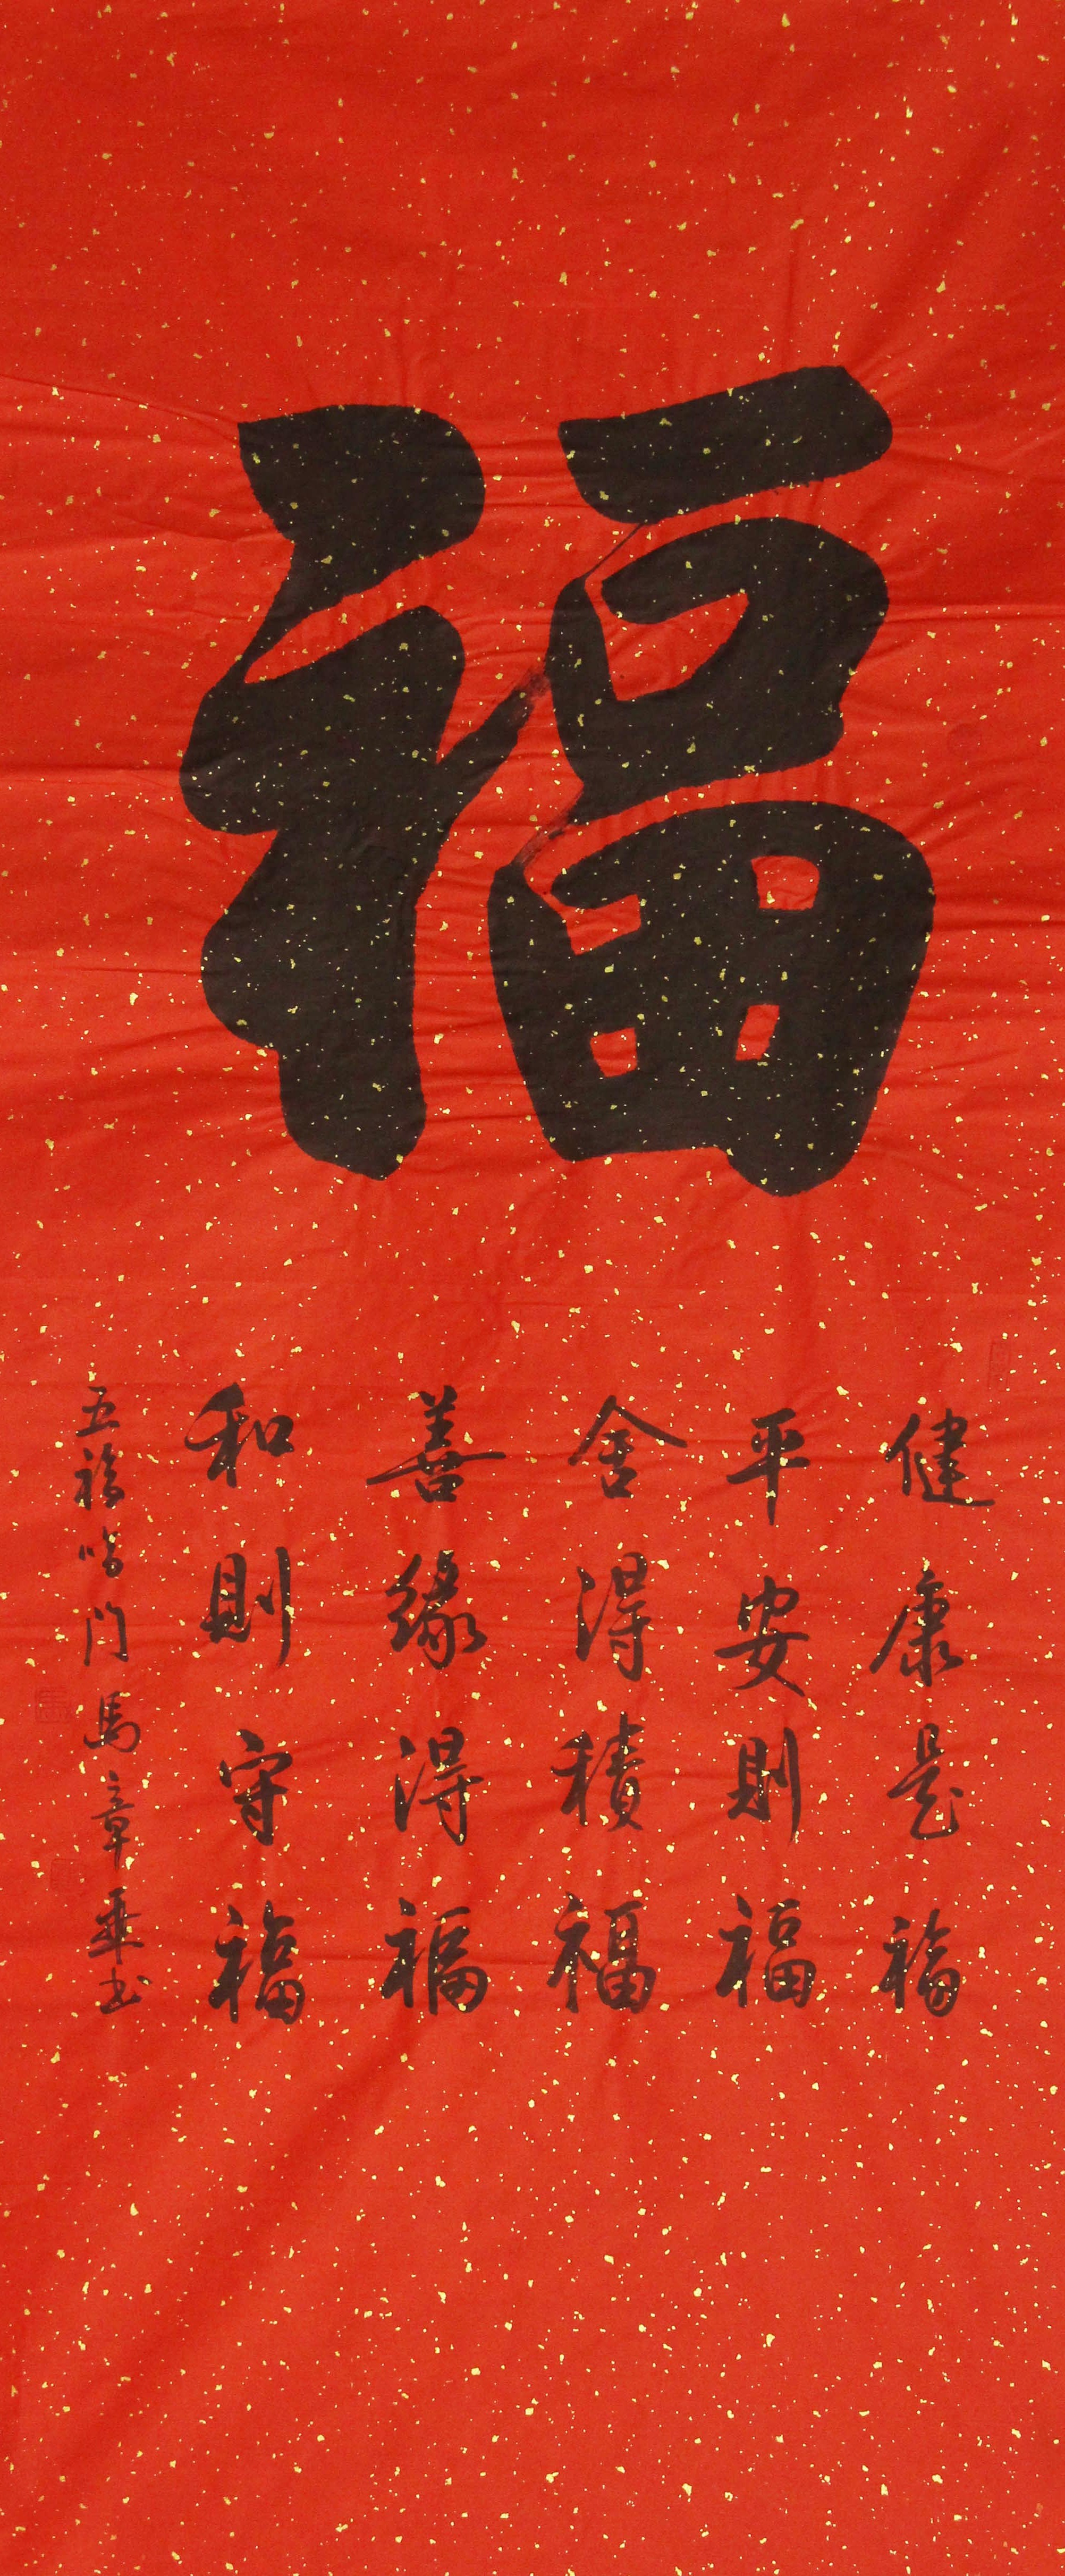 福
健康是福
平安則福
舍得積福
善緣得福
和則守福
五福臨門 馬章乘书